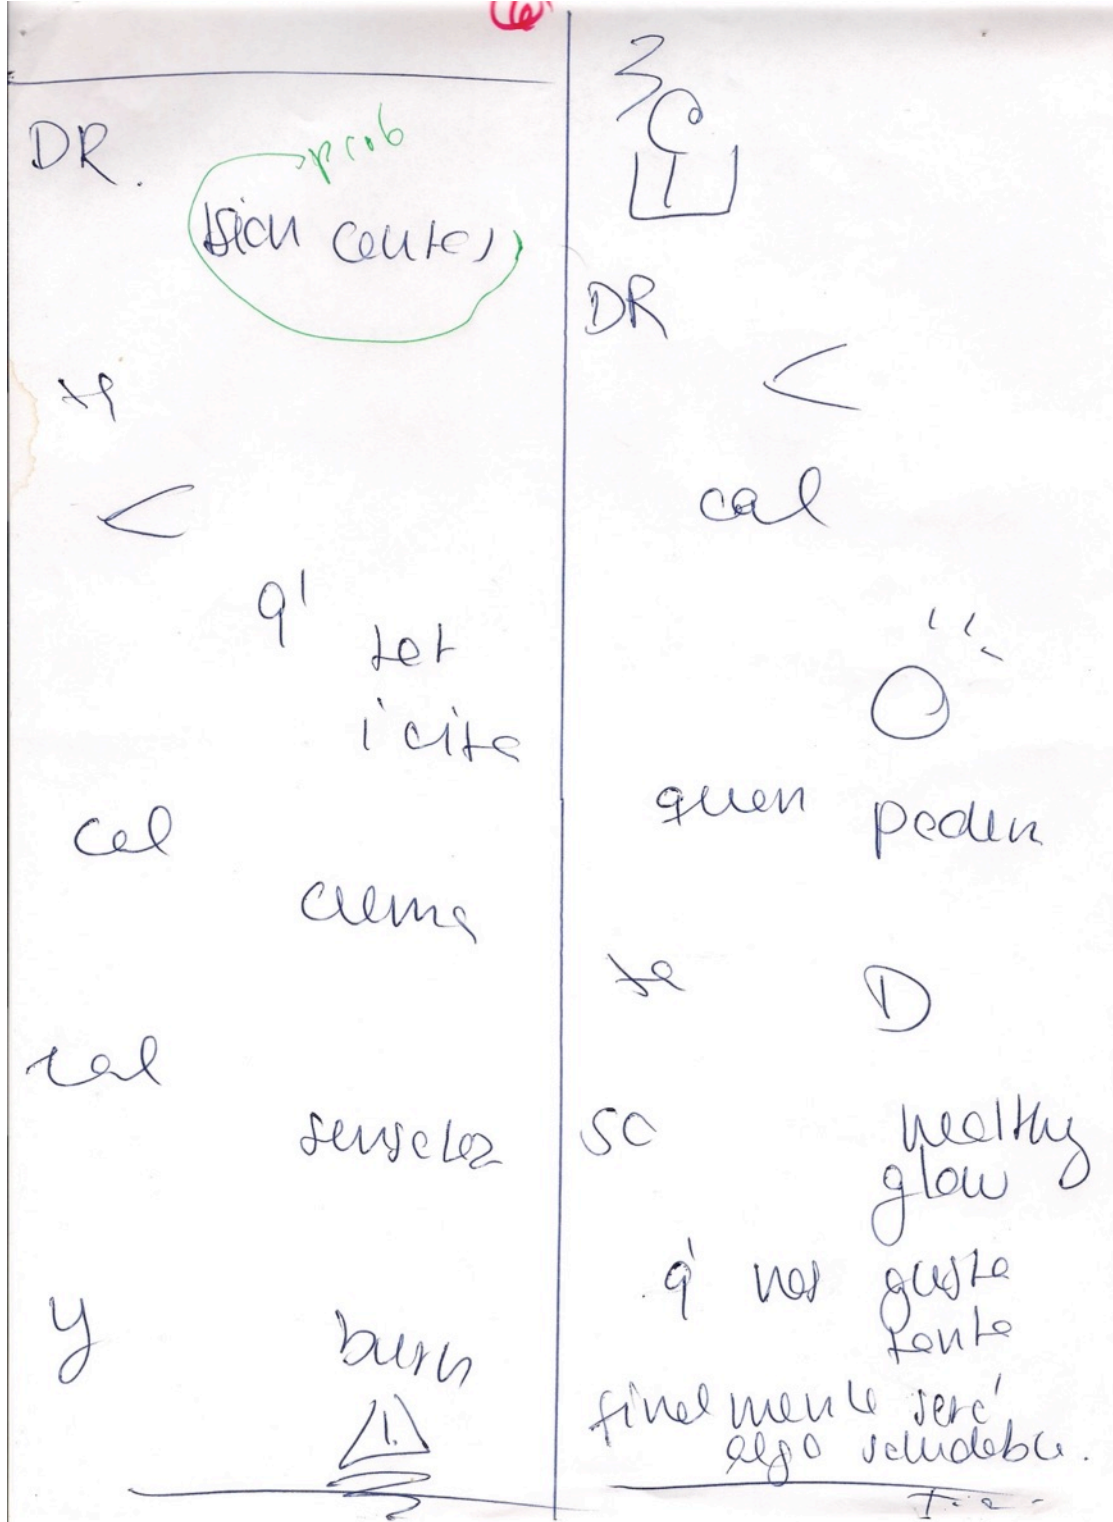 DR.
prob
te
<
q'
tet
i cite
cal
crema
cal
y
burn
3
DR
<
cal
quen peden
te D
so healthy
glow
q' nos gusta
tanto
finalmente será
algo saludable.